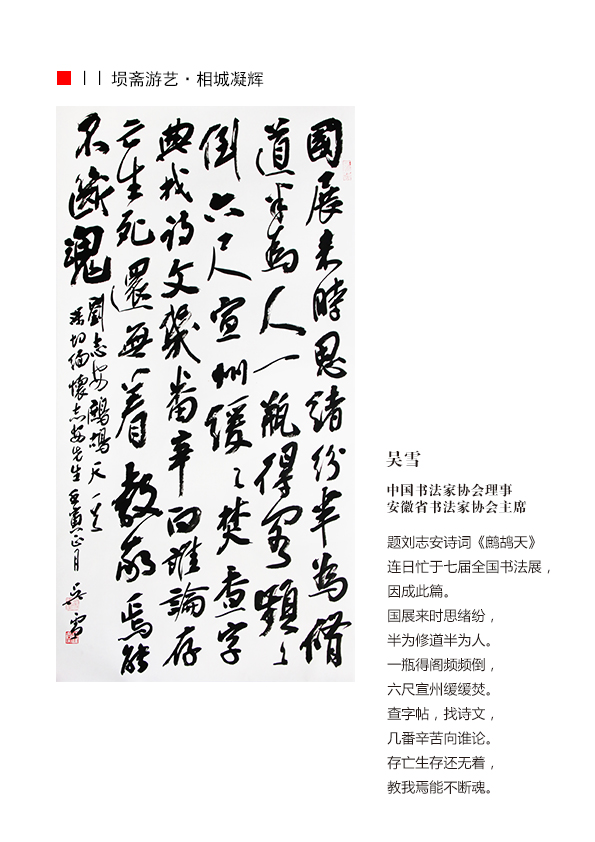 埙斋游艺·相城凝辉
國展来時思緒紛半為脩
道半為人一瓶得閣頻〻
倒六尺宣州緩〻焚查字
典找詩文幾番辛向誰論存
亡生死還無着教我焉能
不斷魂
劉志安鷓鴣天一首
深切緬懷志安先生壬寅正月吴雪
吴雪
中国书法家协会理事
安徽省书法家协会主席
题刘志安诗词《鹧鸪天》
连日忙于七届全国书法展，
因成此篇。
国展来时思绪纷，
半为修道半为人。
一瓶得阁频频倒，
六尺宣州缓缓焚。
查字帖，找诗文，
几番辛苦向谁论。
存亡生存还无着，
教我焉能不断魂。